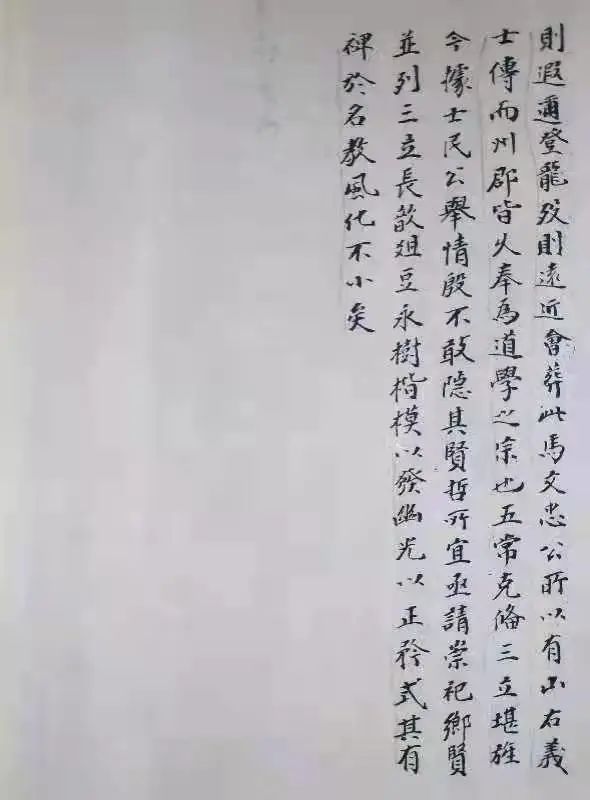 則遐邇登龍歿則遠近會葬此馬文忠公所以有山右義
士傳而州郡皆以奉為道學之宗也五常克脩三立堪旌
今據士民公舉情殷不敢隐其賢哲所宜亟請崇祀鄉賢
並列三立長歆俎豆永樹楷模以發幽光以正矜式其有
裨於名教風化不小矣